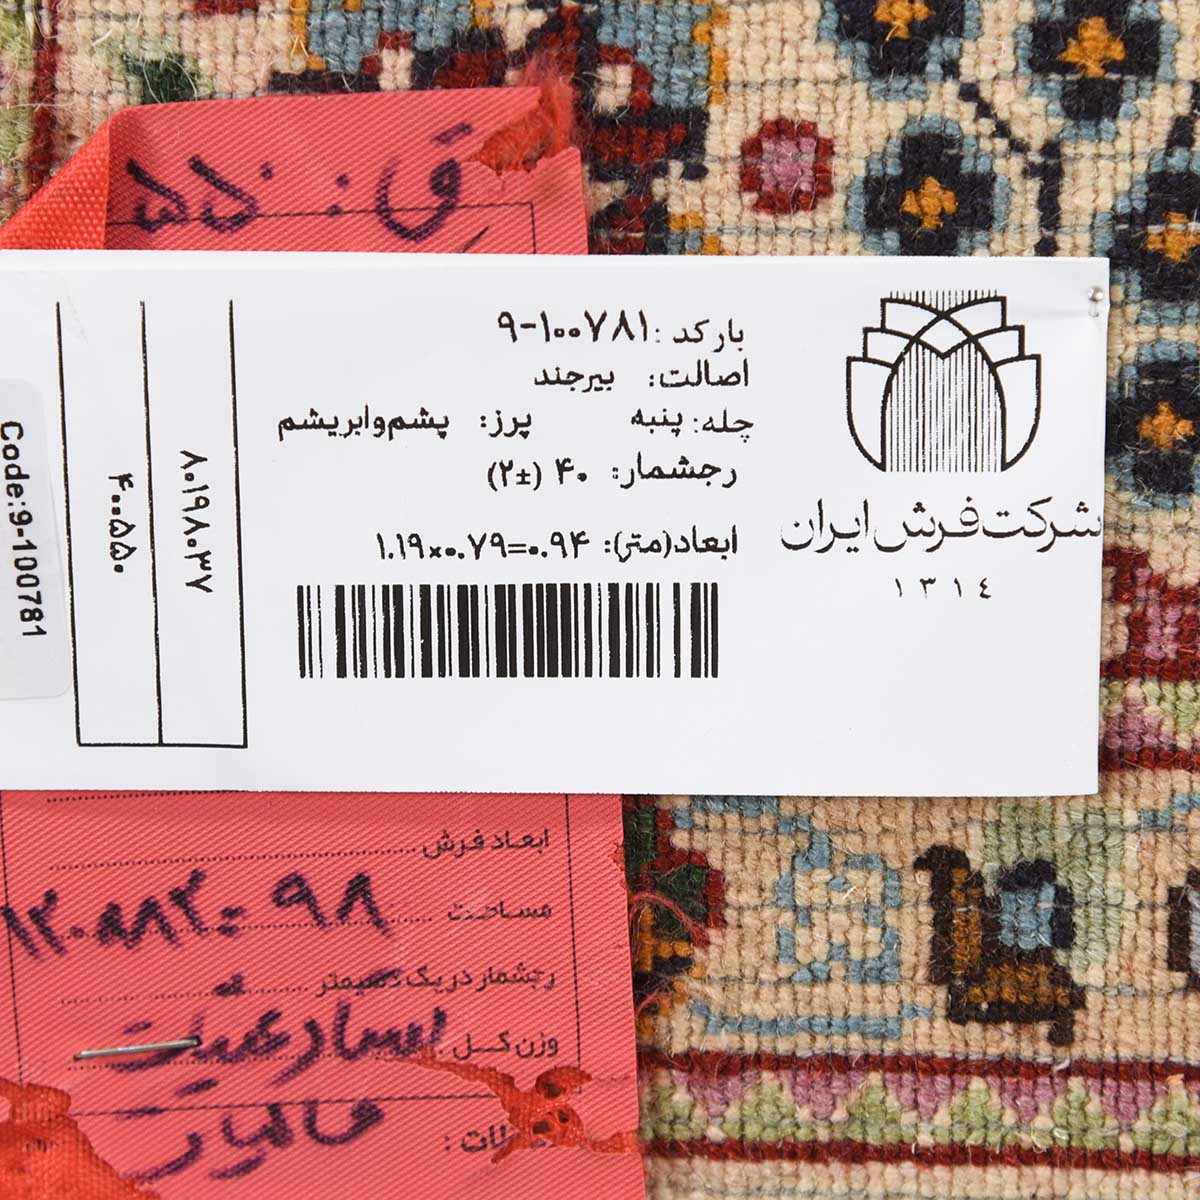 ق: ۵۵۰
بارکد: ۹-۱۰۰۷۸۱
اصالت: بیرجند
چله: پنبه پرز: پشم و ابریشم
رجشمار: ۴۰ (±۲)
ابعاد(متر): ۱.۱۹×۰.۷۹=۰.۹۴
شرکت فرش ایران
۱۳۱۴
۸۰۱۹۸۰۳۷
۴۰۰۵۵۰
Code:9-100781
ابعاد فرش
مساحت ۹۸
رجشمار در یک دسیمتر
وزن کل